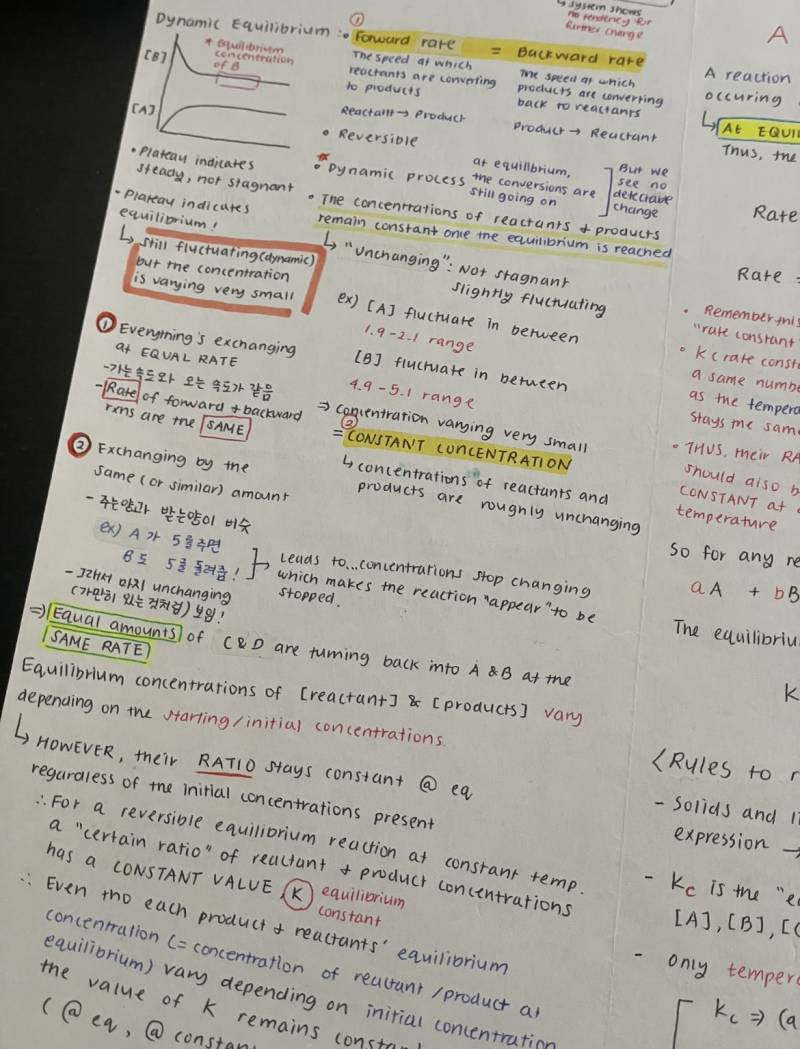 system shows
no tendency for
further change
Dynamic Equilibrium :
①
Forward rate = Backward rate
The speed at which
reactants are converting
to products
The speed at which
products are converting
back to reactants
Reactant → Product
Product → Reactant
• Reversible
[B]
* Equilibrium
concentration
of B
[A]
• Plateau indicates
steady, not stagnant
• Plateau indicates
equilibrium!
↳ still fluctuating (dynamic)
but the concentration
is varying very small
• Dynamic process
at equilibrium,
the conversions are
still going on
But we
see no
detectable
change
• The concentrations of reactants + products
remain constant one the equilibrium is reached
↳ "Unchanging": Not stagnant
slightly fluctuating
ex) [A] fluctuate in between
1.9-2.1 range
[B] fluctuate in between
4.9-5.1 range
⇒ Concentration varying very small
②
= CONSTANT CONCENTRATION
↳ concentrations of reactants and
products are roughly unchanging
① Everything's exchanging
at EQUAL RATE
-가는속도와 오는 속도가 같음
-Rate of forward + backward
rxns are the SAME
② Exchanging by the
same (or similar) amount
- 주는양과 받는양이 비슷
ex) A가 5를주면
B도 5를 돌려줌!
Leads to... concentrations stop changing
which makes the reaction "appear" to be
stopped.
- 그래서 마치 unchanging
(가만히 있는 것처럼) 보임!
⇒ Equal amounts of C & D are turning back into A & B at the
SAME RATE
Equilibrium concentrations of [reactant] & [products] vary
depending on the starting/initial concentrations.
↳ HOWEVER, their RATIO stays constant @ eq
regardless of the initial concentrations present
∴ For a reversible equilibrium reaction at constant temp.
a "certain ratio" of reactant + product concentrations
has a CONSTANT VALUE, K equilibrium
constant
∴ Even tho each product + reactants' equilibrium
concentration (= concentration of reactant/product at
equilibrium) vary depending on initial concentration
the value of K remains
(@ eq, @
A
A reaction
occuring
↳ At
Thus, the
Rate
Rate =
• Remember
"rate constant
• K (rate
a same
as the
stays the
• THUS, their
should also
CONSTANT at
temperature
So for any
aA + bB
The
K
<Rules to
- Solids and
expression →
- Kc is the
[A], [B],
- only
Kc ⇒